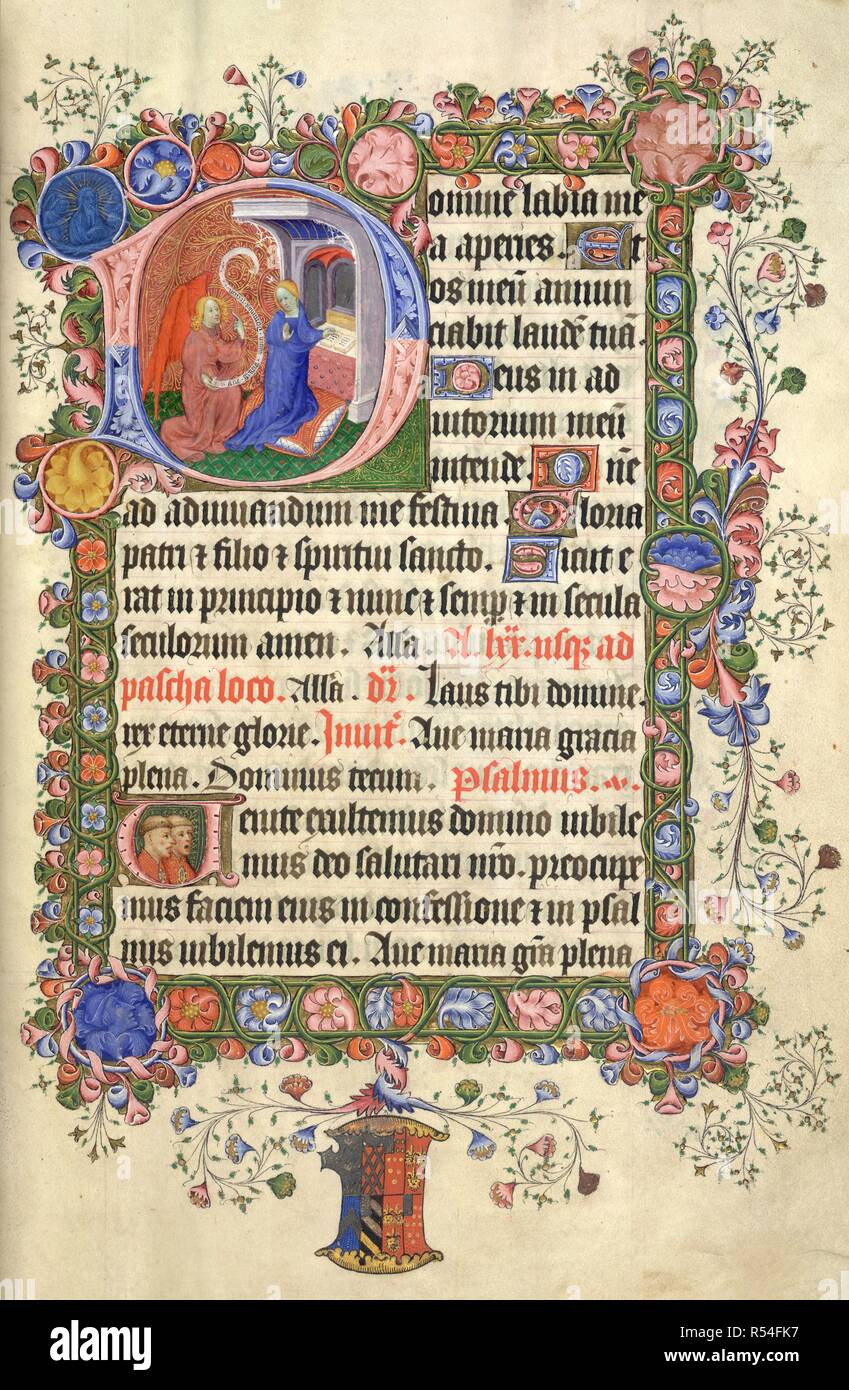 Domine labia me
a aperies. Et
os meū annun
ciabit laudē tuā.
Deus in ad
iutorium meū
intende. Dñe
ad adiuuandum me festina. Gloria
patri ⁊ filio ⁊ spiritui sancto. Sicut e
rat in principio ⁊ nunc ⁊ semꝑ ⁊ in secula
seculorum amen. Alla. A. lxx. usqꝫ ad
pascha loco. Alla. dr̄. Laus tibi domine.
rex eterne glorie. Inuit̄. Aue maria gracia
plena. Dominus tecum. Psalmus.
Uenite exultemus domino iubile
mus deo salutari nr̄o. preocupe
mus faciem eius in confessione ⁊ in psal
mis iubilemus ei. Aue maria gr̄a plena
alamy
Image ID: R54FK7
www.alamy.com